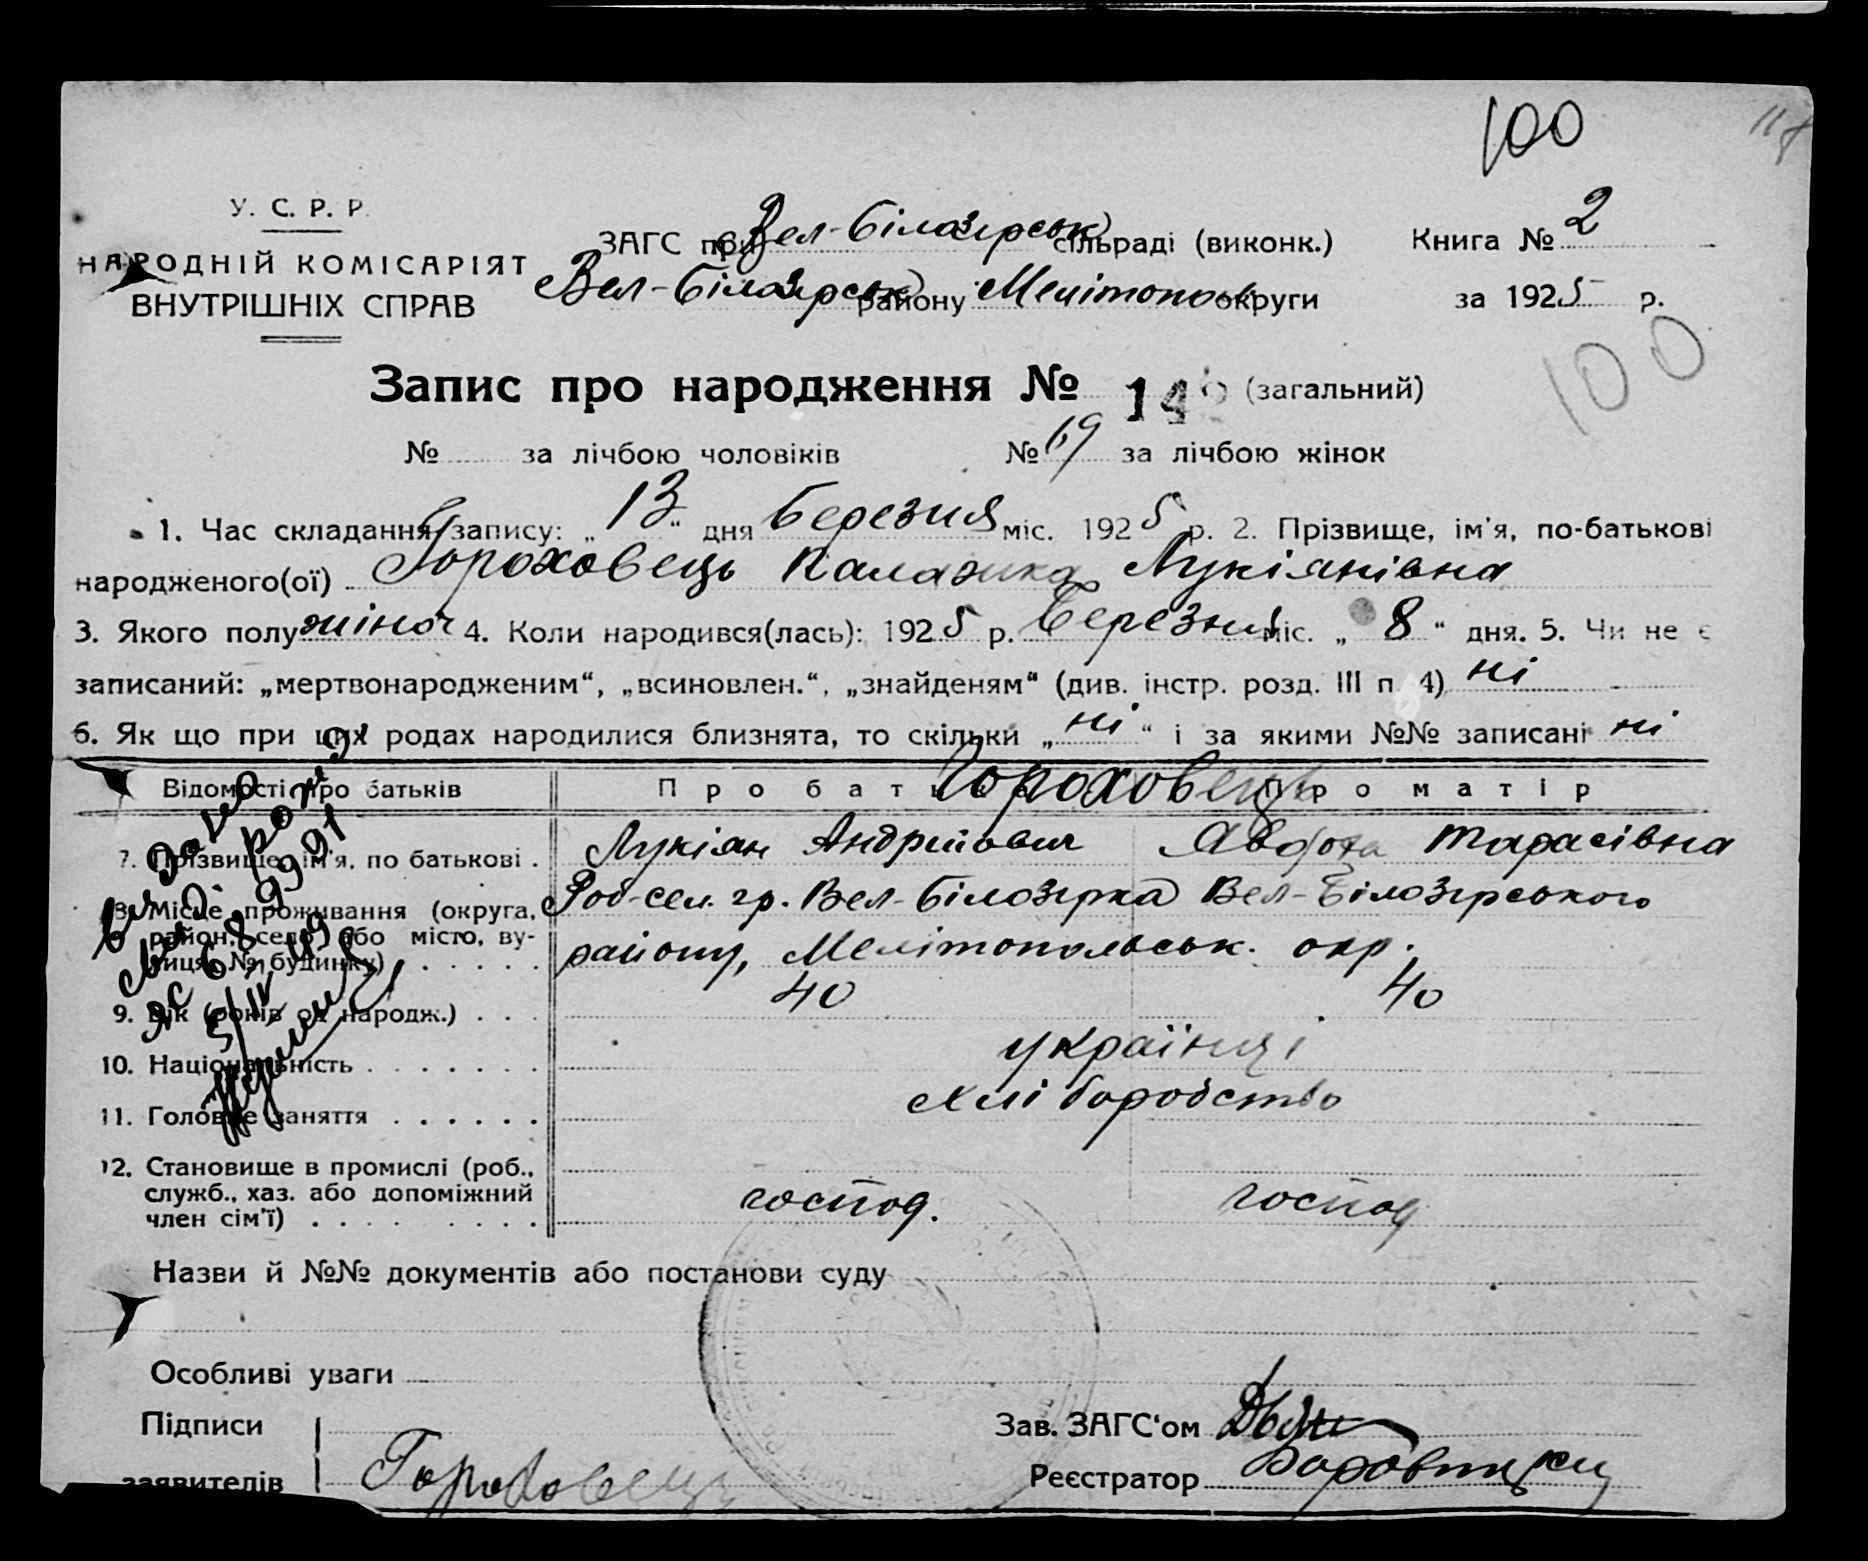 100
118
У. С. Р. Р.
НАРОДНІЙ КОМІСАРІЯТ
ВНУТРІШНІХ СПРАВ
ЗАГС при Вел-Білозірськ сільраді (виконк.)
Вел-Білозірськ району Мелітопол округи
Книга № 2
за 1925 р.
Запис про народження № 142 (загальний)
100
№ за лічбою чоловіків № 69 за лічбою жінок
1. Час складання запису: „13“ дня березня міс. 1925 р. 2. Прізвище, ім'я, по-батькові
народженого(ої) Гороховець Палажка Лукіянівна
3. Якого полу жіноч 4. Коли народився(лась): 1925 р. березня міс. „8“ дня. 5. Чи не є
записаний: „мертвонародженим“, „всиновлен.“, „знайденям“ (див. інстр. розд. III п. 4) ні
6. Як що при цих родах народилися близнята, то скільки „ні“ і за якими №№ записані ні
Відомості про батьків Про батька Про матір
Гороховець
7. Прізвище, ім'я, по батькові . Лукіян Андрійович Явдоха Тарасівна
8. Місце проживання (округа, район, село, або місто, вулиця, № будинку) . . . . .
Вел-Білозірка Вел-Білозірського
району, Мелітопольськ. окр.
9. Вік (років од народж.) . . . 40 40
10. Національність . . . . . . . українці
11. Головне заняття . . . . . . хліборобство
12. Становище в промислі (роб.,
служб., хаз. або допоміжний
член сім'ї) . . . . . . . . . господ. господ
Назви й №№ документів або постанови суду
Особливі уваги
Підписи
заявителів Гороховець
Зав. ЗАГС'ом
Реєстратор
Видано